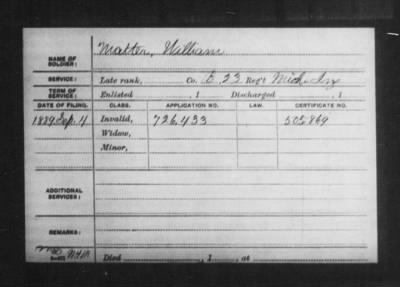 Matter, William
NAME OF SOLDIER:
SERVICE: Late rank, Co. E. 23 Reg't Mich. Inf
TERM OF SERVICE: Enlisted , 1 Discharged , 1
DATE OF FILING. CLASS. APPLICATION NO. LAW. CERTIFICATE NO.
1889 Sep. 4 Invalid, 726,433 505,869
Widow,
Minor,
ADDITIONAL SERVICES:
REMARKS:
Died , 1 , at